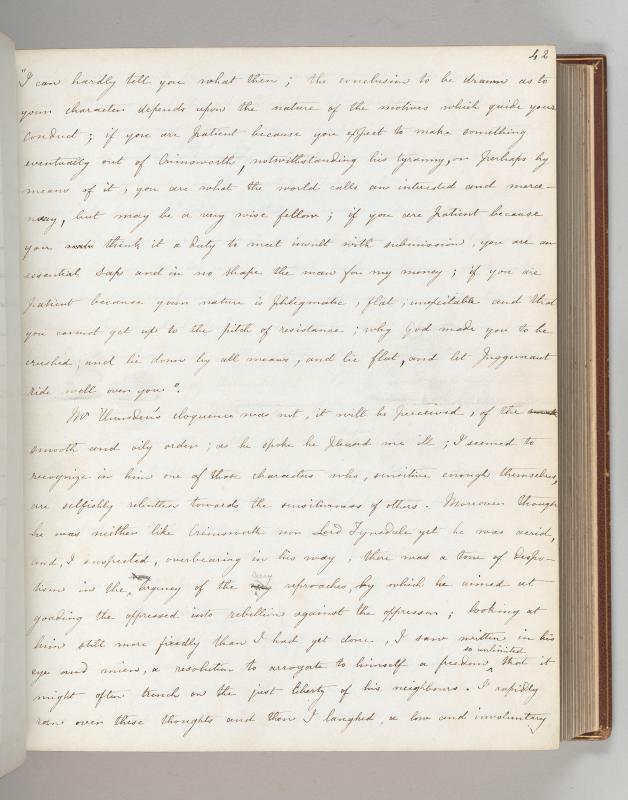 42
"I can hardly tell you what then; the conclusion to be drawn as to
your character depends upon the nature of the motives which guide your
conduct; if you are patient because you expect to make something
eventually out of Crimsworth, notwithstanding his tyranny, or perhaps by
means of it, you are what the world calls an interested and merce-
nary, but may be a very wise fellow; if you are patient because
you think it a duty to meet insult with submission, you are an
essential sap and in no shape the man for my money; if you are
patient because your nature is phlegmatic, flat, inexcitable and that
you cannot get up to the pitch of resistance; why God made you to be
crushed; and lie down by all means, and lie flat, and let Juggernaut
ride well over you".
Mr Hunsden's eloquence was not, it will be perceived, of the
smooth and oily order; as he spoke he pleased me ill; I seemed to
recognize in him one of those characters who, sensitive enough themselves,
are selfishly relentless towards the sensitiveness of others. Moreover though
he was neither like Crimsworth nor Lord Tynedale yet he was acrid,
and, I suspected, overbearing in his way; there was a tone of despo-
tism in the urgency of the very reproaches, by which he aimed at
goading the oppressed into rebellion against the oppressor; looking at
him still more fixedly than I had yet done, I saw written in his
eye and mien, a resolution to arrogate to himself a freedom so unlimited that it
might often trench on the just liberty of his neighbours. I rapidly
ran over these thoughts and then I laughed, a low and involuntary